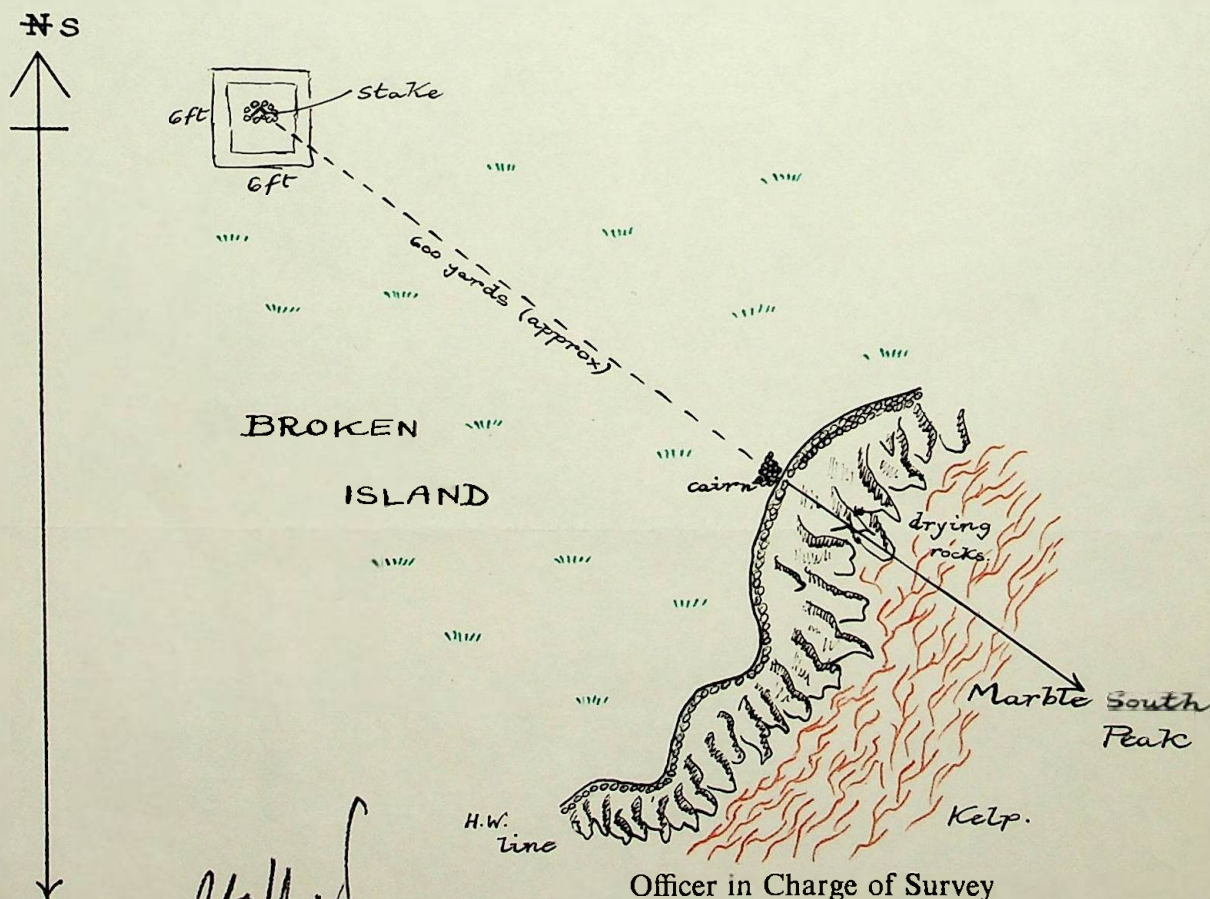 N S
stake
6ft
6ft
600 yards (approx)
BROKEN
ISLAND
cairn
drying
rocks.
Marble South
Peak
H.W.
line
Kelp.
Officer in Charge of Survey